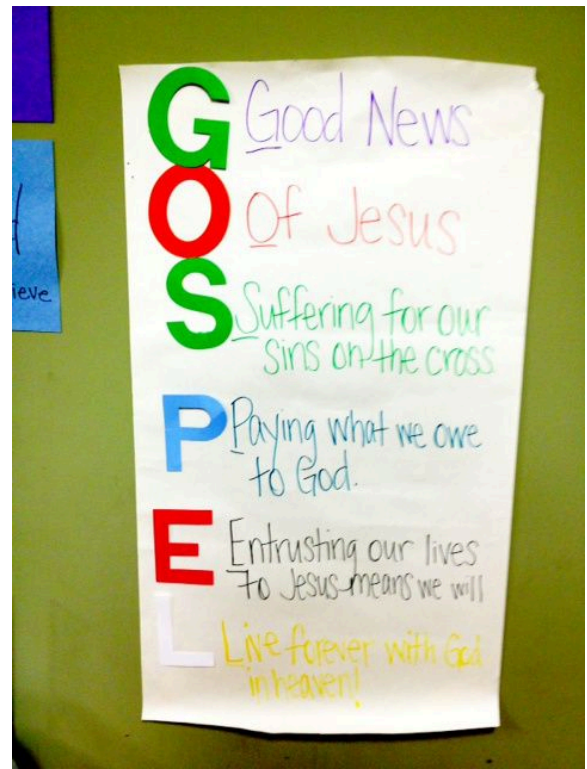 GOSPEL
Good News
Of Jesus
Suffering for our
sins on the cross
Paying what we owe
to God.
Entrusting our lives
to Jesus means we will
Live forever with God
in heaven!
ieve